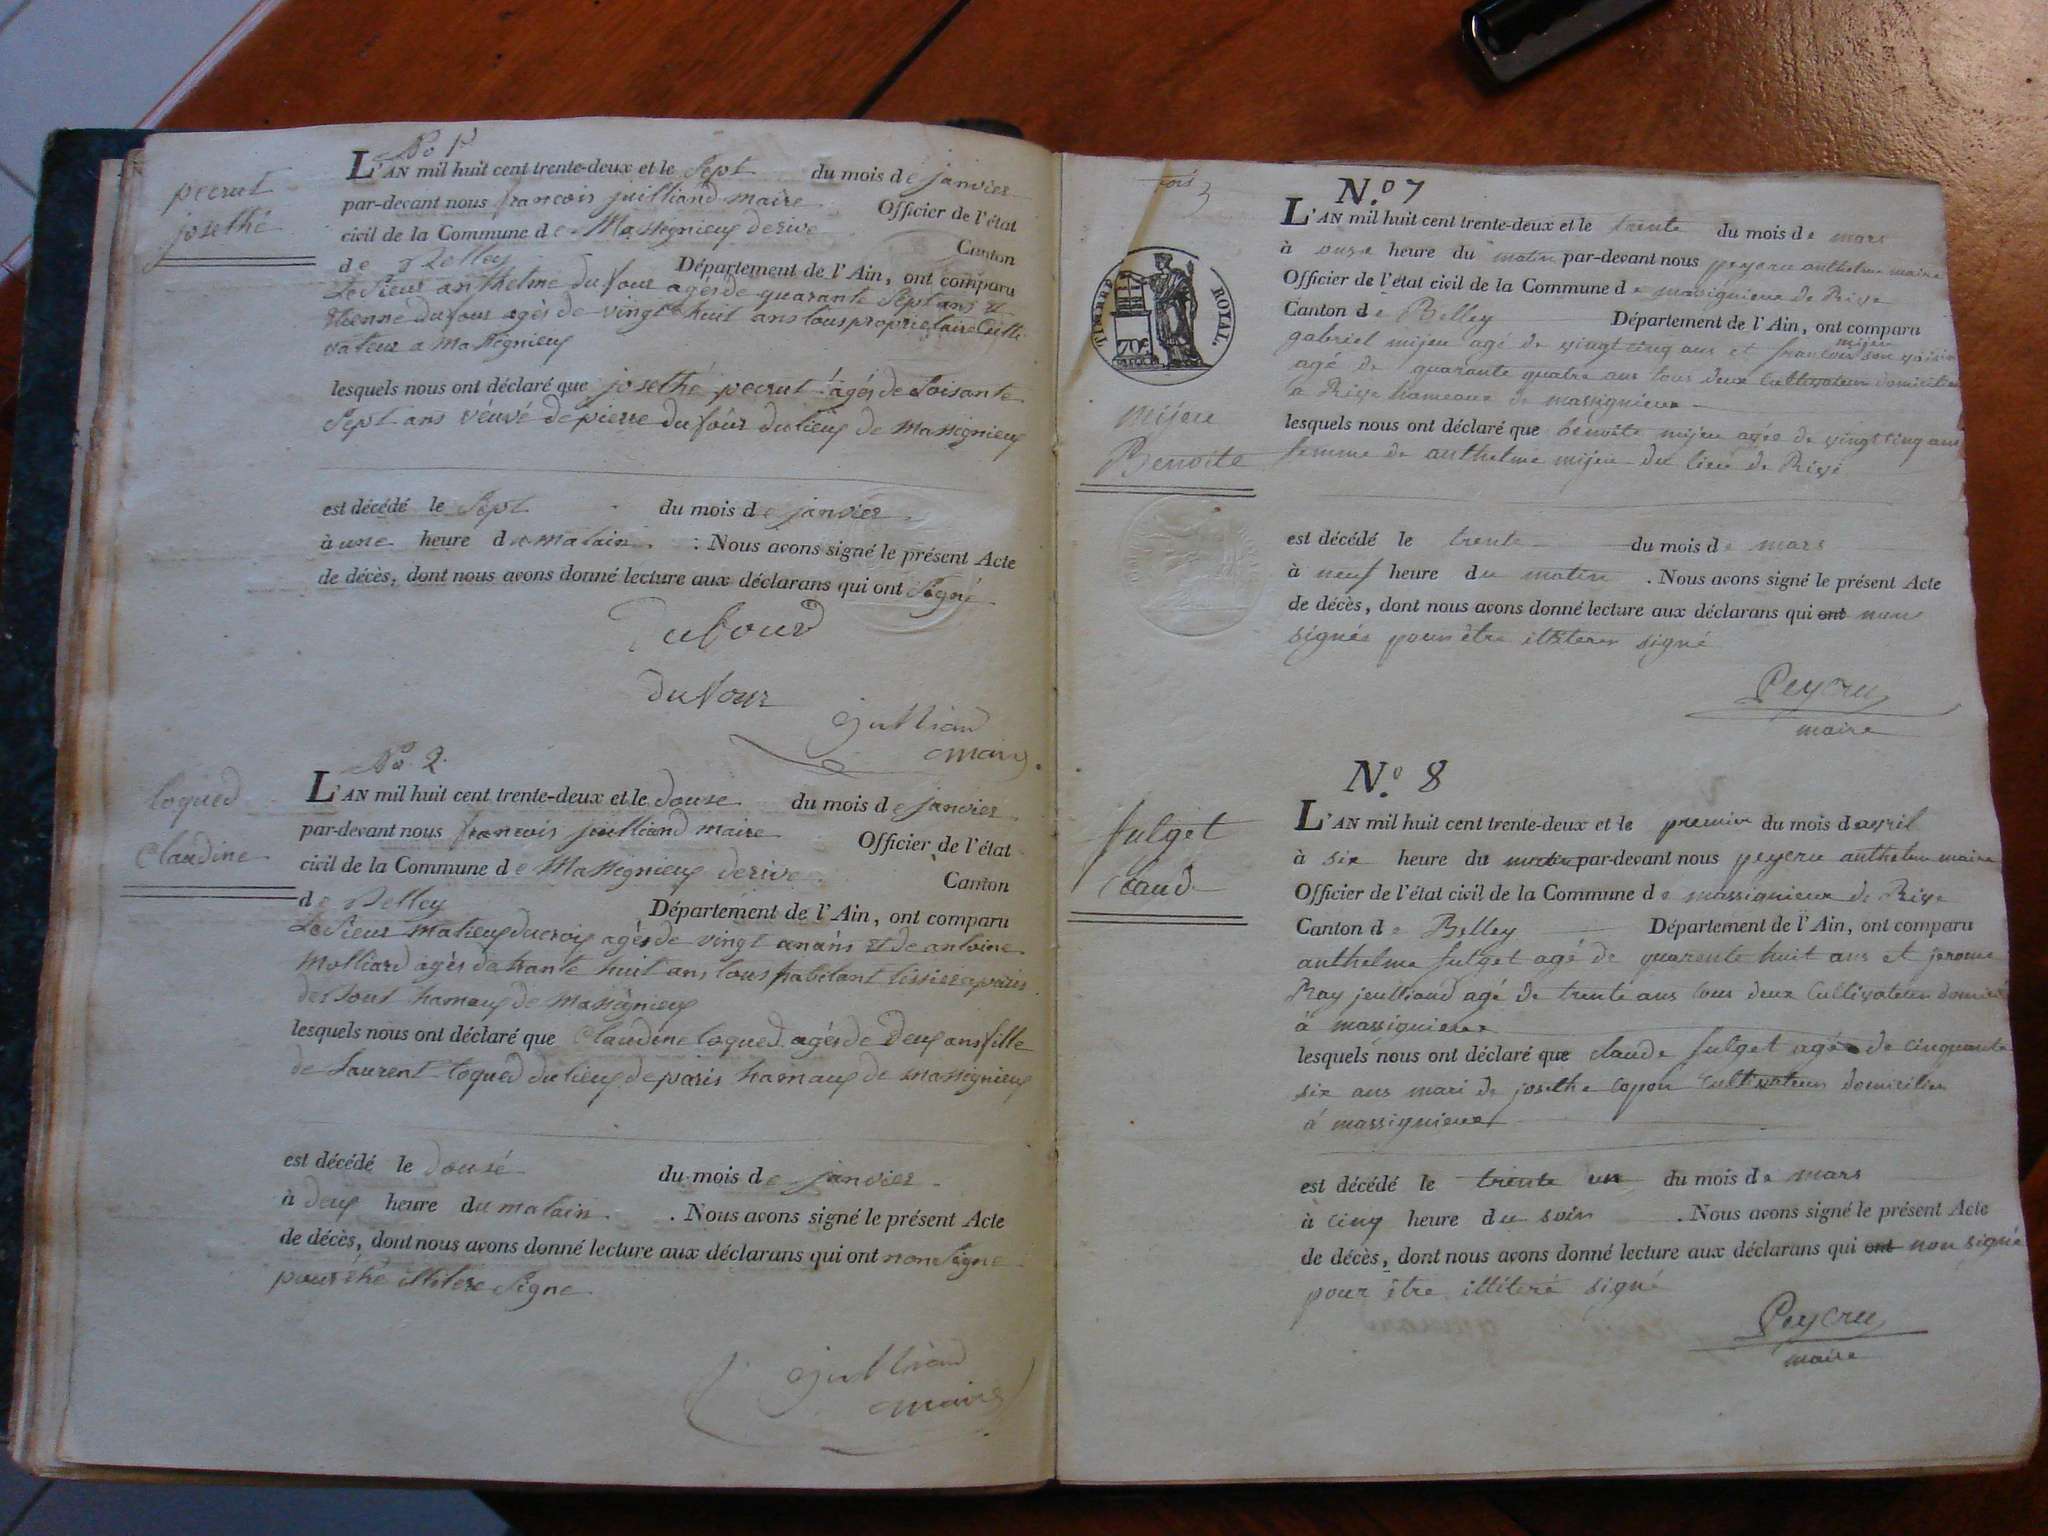 No 1er
pecrut
josethé
L'AN mil huit cent trente-deux et le Sept du mois de janvier
par-devant nous francois juilliand maire Officier de l'état
civil de la Commune de Massignieux derive Canton
de Belley Département de l'Ain, ont comparu
Le Sieur anthelme dufour agés de quarante Sept ans et
Etienne dufour agés de vingt huit ans tous proprietaire Culti
vateur a Massignieux
lesquels nous ont déclaré que josethé pecrut agés de Soisante
Sept ans veuvé de pierre dufour du lieux de Massignieux
est décédé le Sept du mois de janvier
à une heure du matain : Nous avons signé le présent Acte
de décès, dont nous avons donné lecture aux déclarans qui ont Signé
Dufour
dufour
Jullian
maire
No 2
loqued
Claudine
L'AN mil huit cent trente-deux et le douse du mois de janvier
par-devant nous francois juilliand maire Officier de l'état
civil de la Commune de Massignieux derive Canton
de Belley Département de l'Ain, ont comparu
Le Sieur matieux ducroix agés de vingt et de antoine
Molliard agés de trante huit ans tous habitant
hamaux de Massignieux
lesquels nous ont déclaré que Claudine loqued agés de Deux ans fille
de Laurent loqued du lieux de paris hamaux de Massignieux
est décédé le dousé du mois de janvier
à deux heure du matain . Nous avons signé le présent Acte
de décès, dont nous avons donné lecture aux déclarans qui ont non Signe
pour étré illitere Signe
Jullian
maire
TIMBRE ROYAL.
N.o 7
mijeu
Benoite
L'AN mil huit cent trente-deux et le trente du mois de mars
à onze heure du matin par-devant nous peycru anthelme maire
Officier de l'état civil de la Commune de massignieux de Rive
Canton de Belley Département de l'Ain, ont comparu
gabriel mijeu agé de vingt cinq ans et francois mijeu son voisin
agé de quarante quatre ans tous deux Cultivateur domicilier
a Rive hameaux de massignieux
lesquels nous ont déclaré que benoite mijeu agée de vingt cinq ans
femme de anthelme mijeu du lieu de Rive
est décédé le trente du mois de mars
à neuf heure du matin . Nous avons signé le présent Acte
de décès, dont nous avons donné lecture aux déclarans qui ont non
signés pour être illiterer signé
Peycru
maire
N.o 8
fulget
Claud
L'AN mil huit cent trente-deux et le premier du mois davril
à six heure du matin par-devant nous peycru anthelme maire
Officier de l'état civil de la Commune de massignieux de Rive
Canton de Belley Département de l'Ain, ont comparu
anthelme fulget agé de quarente huit ans et jerome
Ray jeulliand agé de trente ans tous deux Cultivateur
à massignieux
lesquels nous ont déclaré que claude fulget agé de cinquante
six ans mari de josethe copon cultivateur domicilier
à massignieux
est décédé le trente un du mois de mars
à cinq heure du soir . Nous avons signé le présent Acte
de décès, dont nous avons donné lecture aux déclarans qui ont non signé
pour être illiteré signé
Peycru
maire